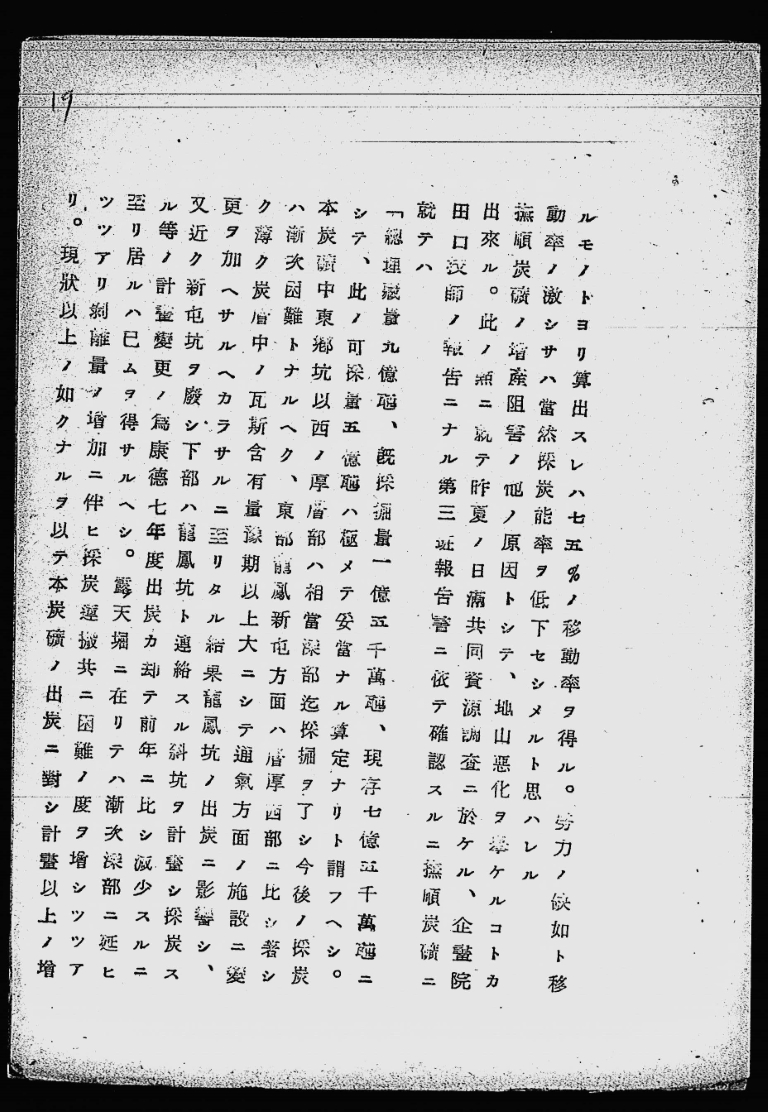 19
ルモノトヨリ算出スレハ七五%ノ移動率ヲ得ル。労力ノ缺如ト移
動率ノ激シサハ當然採炭能率ヲ低下セシメルト思ハレル
撫順炭礦ノ増産阻害ノ他ノ原因トシテ、地山悪化ヲ挙ケルコトカ
出來ル。此ノ點ニ就テ昨夏ノ日満共同資源調査ニ於ケル、企畫院
田口技師ノ報告ニナル第三班報告書ニ依テ確認スルニ撫順炭礦ニ
就テハ
「總埋藏量九億瓲、既採掘量一億五千萬瓲、現存七億五千萬瓲ニ
シテ、此ノ可採量五億瓲ハ極メテ妥當ナル算定ナリト謂フヘシ。
本炭礦中東郷坑以西ノ厚層部ハ相當深部迄採掘ヲ了シ今後ノ採炭
ハ漸次困難トナルヘク、東部龍鳳新屯方面ハ層厚西部ニ比シ著シ
ク薄ク炭層中ノ瓦斯含有量豫期以上大ニシテ通氣方面ノ施設ニ變
更ヲ加ヘサルヘカラサルニ至リタル結果龍鳳坑ノ出炭ニ影響シ、
又近ク新屯坑ヲ廢シ下部ハ龍鳳坑ト連絡スル斜坑ヲ計畫シ採炭ス
ル等ノ計畫變更ノ爲康德七年度出炭カ却テ前年ニ比シ減少スルニ
至リ居ルハ已ムヲ得サルヘシ。露天堀ニ在リテハ漸次深部ニ延ヒ
ツツアリ剥離量ノ増加ニ伴ヒ採炭運搬共ニ困難ノ度ヲ増シツツア
リ。現狀以上ノ如クナルヲ以テ本炭礦ノ出炭ニ對シ計畫以上ノ増